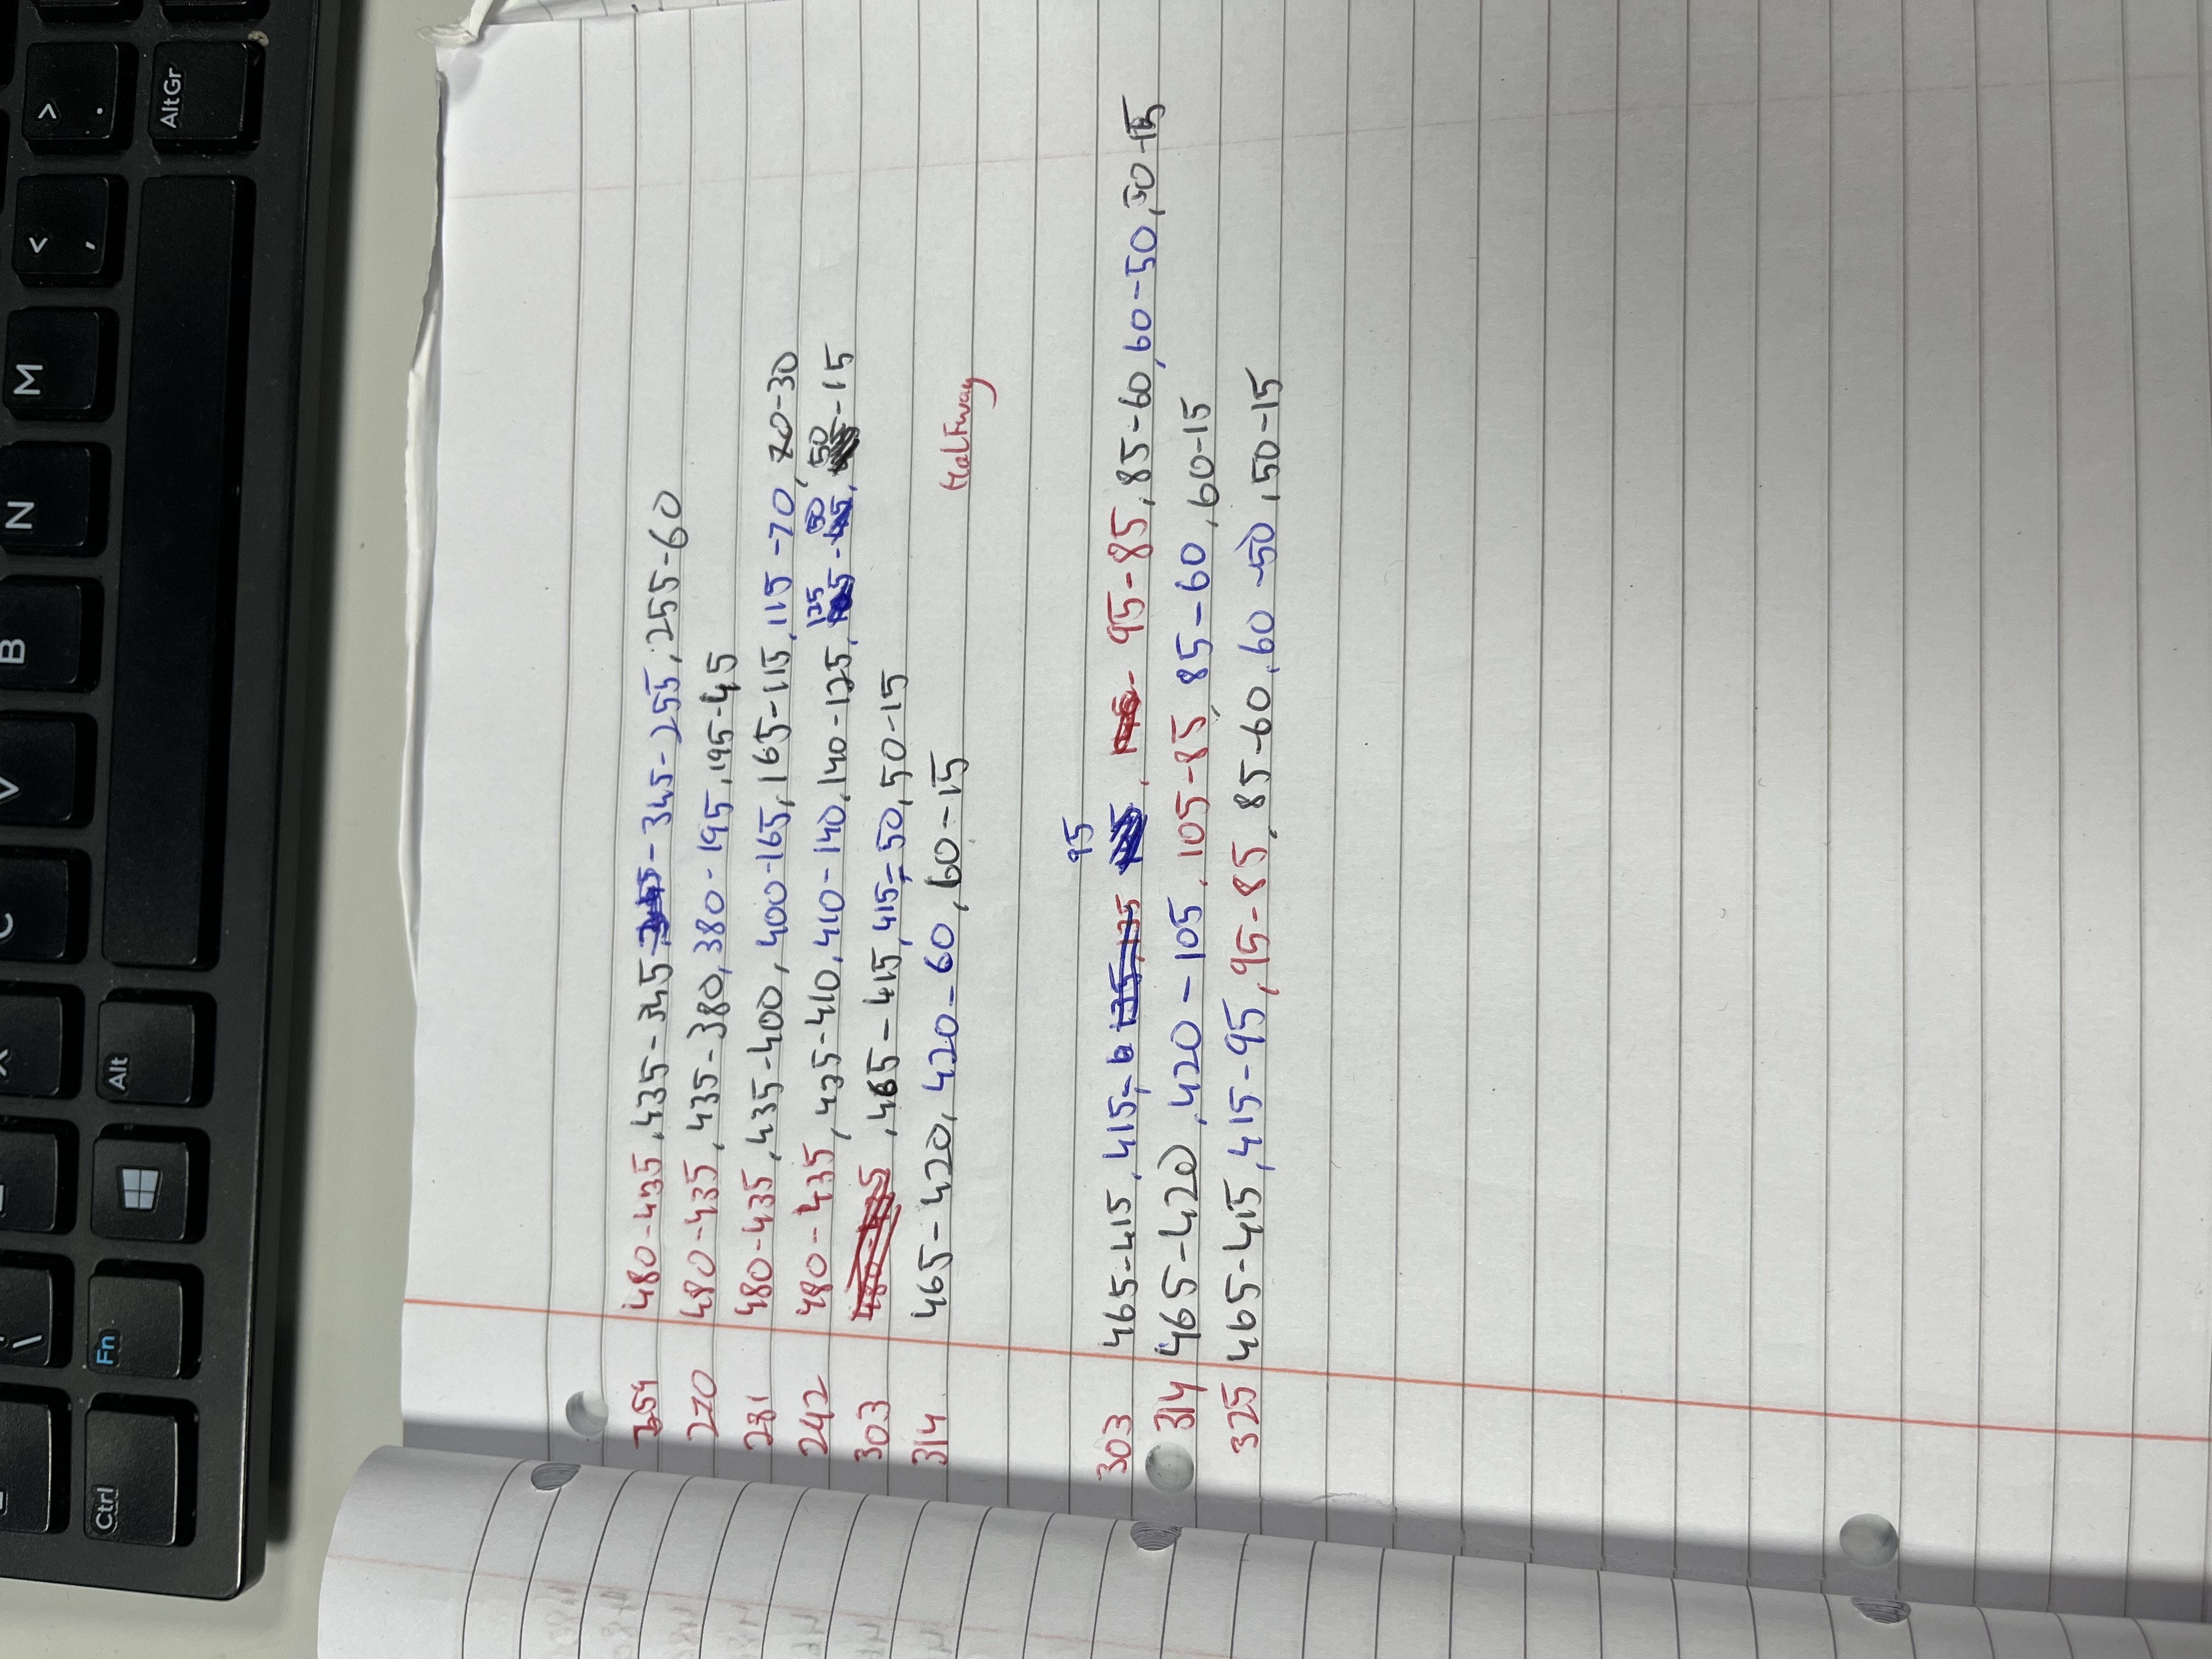 C V B N M < ,  > .
Ctrl Fn Alt AltGr
259 480-435, 435-345, - 345-255, 255-60
270 480-435, 435-380, 380-195, 195-45
281 480-435, 435-400, 400-165, 165-115, 115-70, 70-30
125 50 50
242 480-435, 435-410, 410-140, 140-125, - , -15
303 , 465-415, 415-50, 50-15
314 465-420, 420-60, 60-15
Halfway
95
303 465-415, 415- , - 95-85, 85-60, 60-50, 50-15
314 465-420, 420-105, 105-85, 85-60, 60-15
325 465-415, 415-95, 95-85, 85-60, 60-50, 50-15